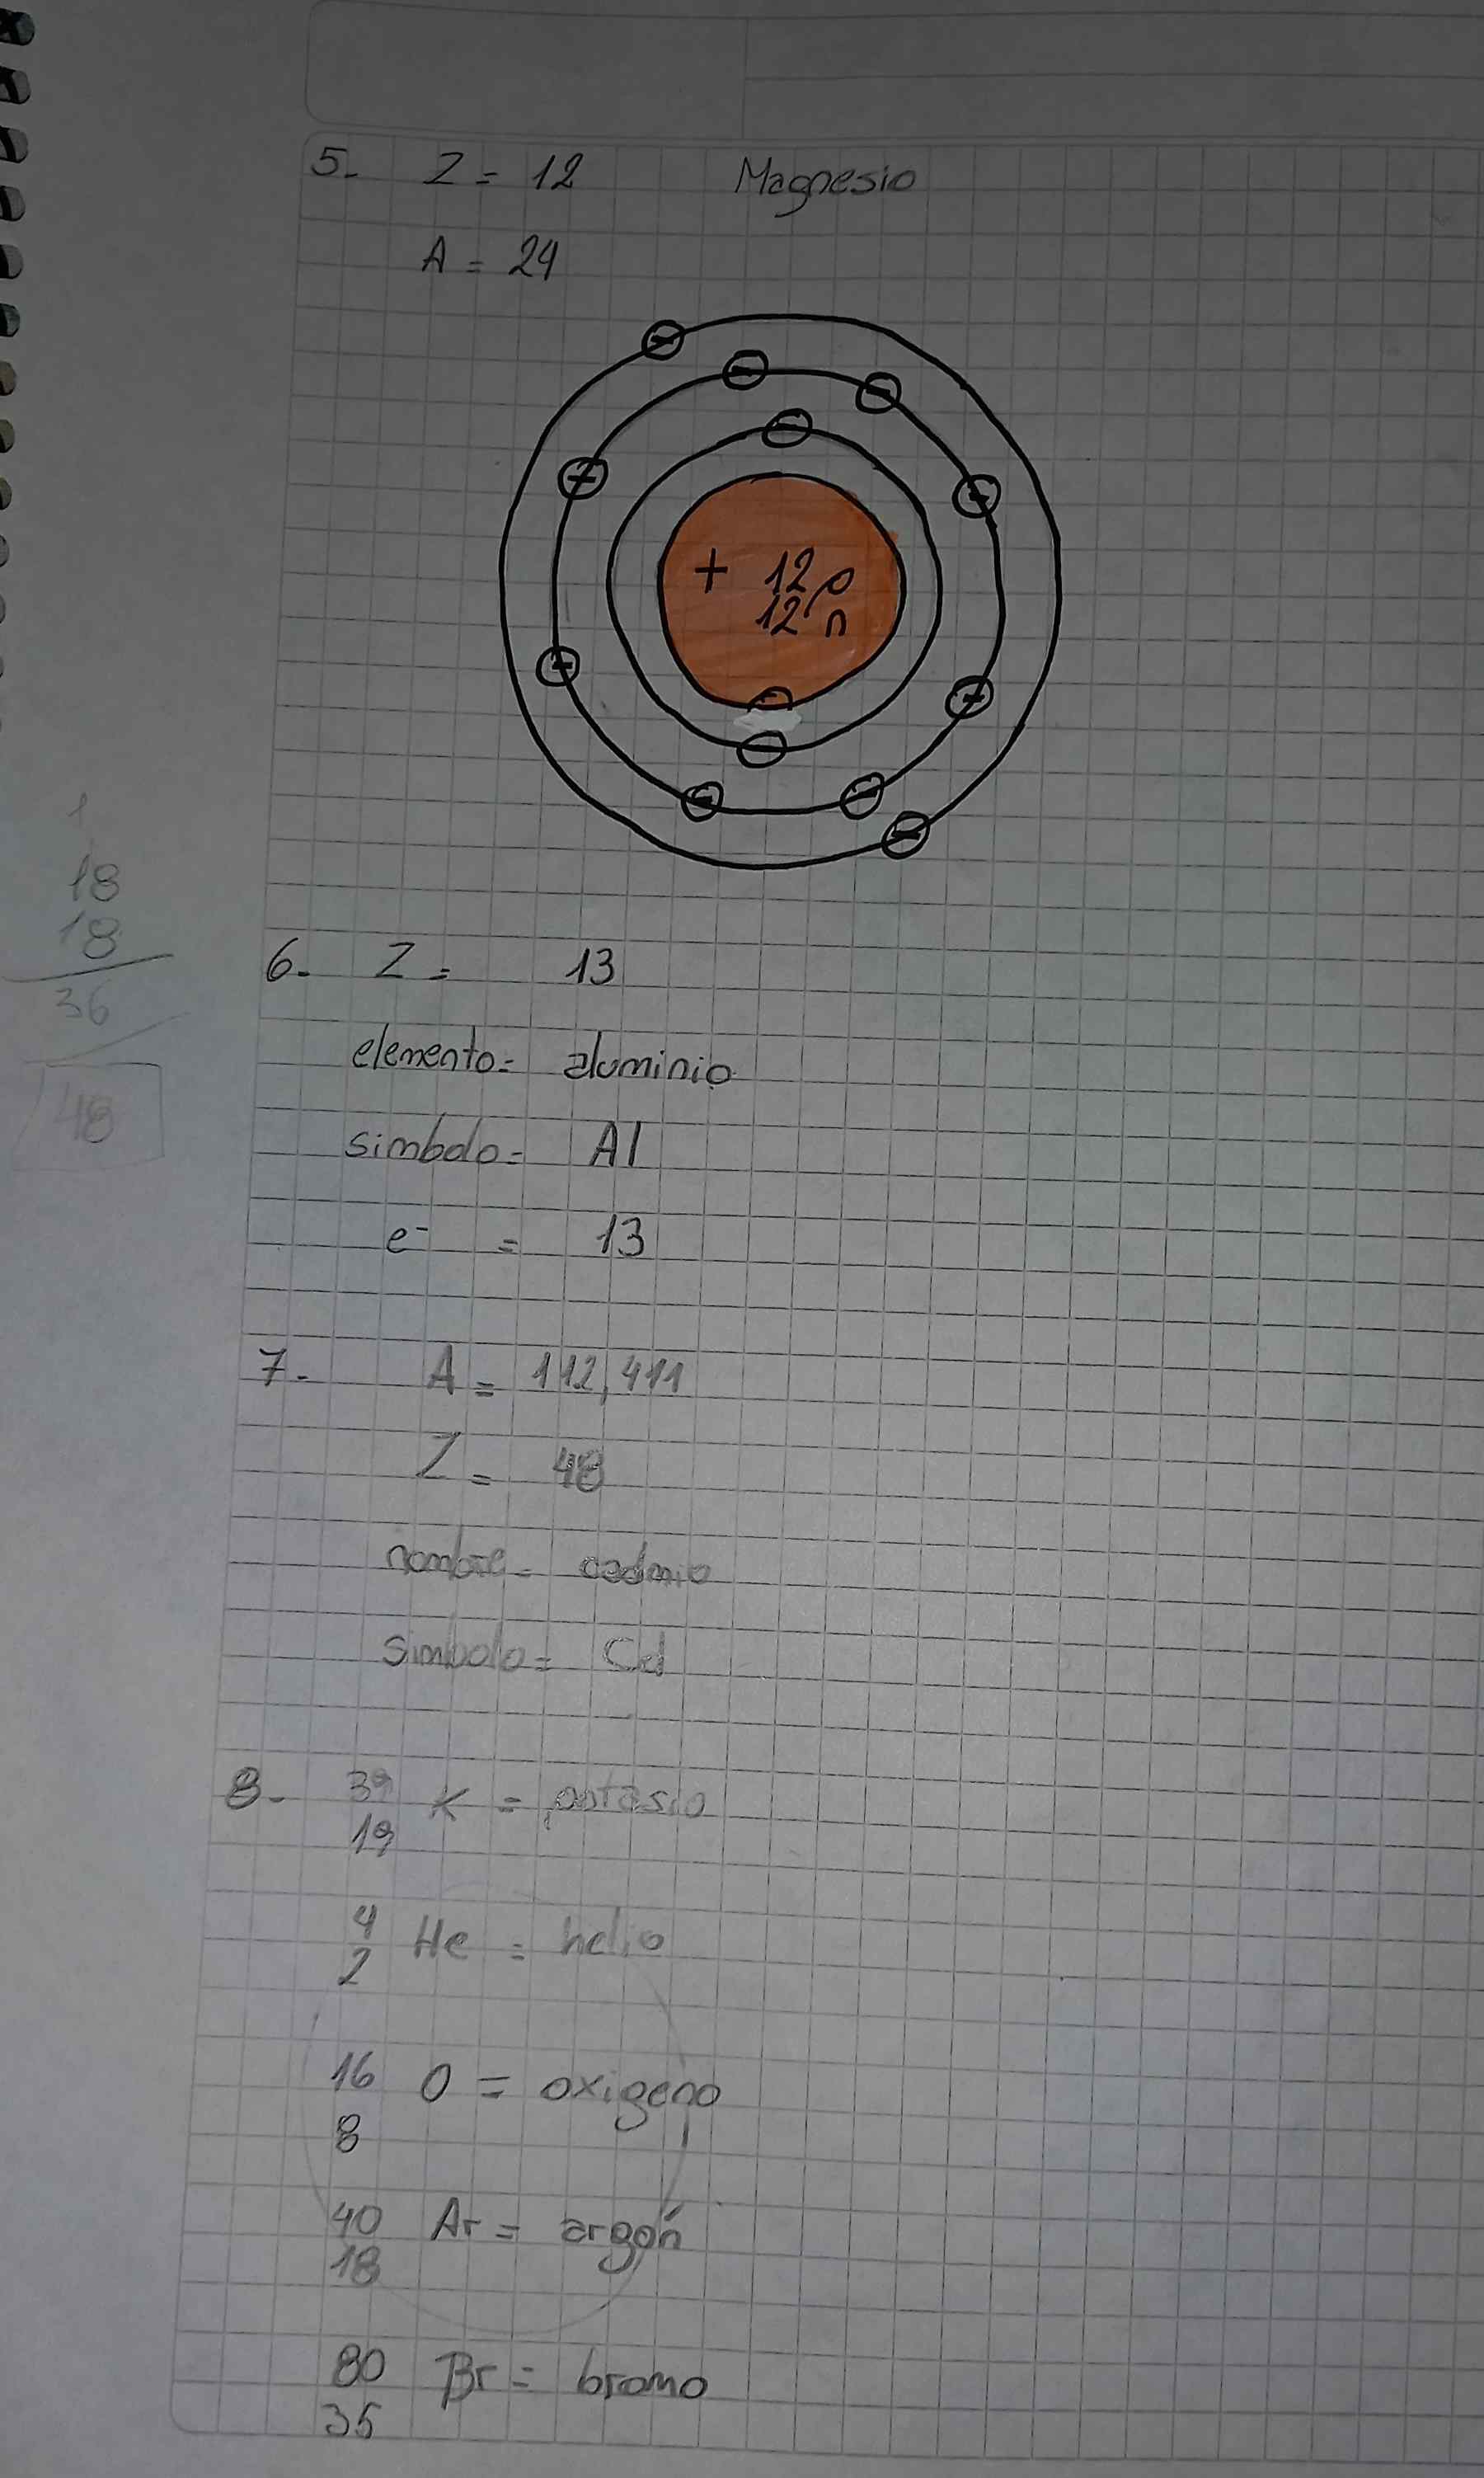 5- Z = 12 Magnesio
A = 24
+ 12p
12n
1
18
18
36
48
6- Z = 13
elemento= aluminio
simbolo= Al
e⁻ = 13
7- A = 112,411
Z = 48
nombre= cadmio
Simbolo= Cd
8- 39 K = potasio
19
4 He = helio
2
16 O = oxigeno
8
40 Ar = argón
18
80 Br = bromo
35